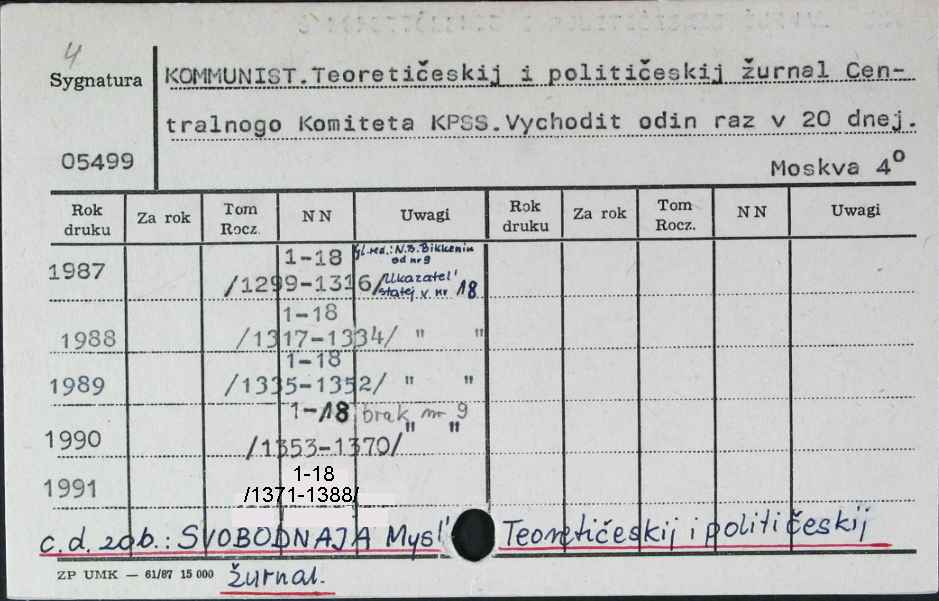 4
Sygnatura
KOMMUNIST.Teoretičeskij i političeskij žurnal Cen-
tralnogo Komiteta KPSS.Vychodit odin raz v 20 dnej.
05499
Moskva 4º
Rok druku Za rok Tom Rocz. N N Uwagi Rok druku Za rok Tom Rocz. N N Uwagi
1987 1-18 gl. red.: N.B. Bikkenin
od nr 9
/1299-1316/ Ukazatel'
statej v nr 18
1-18
1988 /1317-1334/ " "
1-18
1989 /1335-1352/ " "
1-18 brak nr 9
1990 /1353-1370/ " "
1-18
1991 /1371-1388/
c.d. zob.: SVOBODNAJA Mysl' Teoretičeskij i političeskij
ZP UMK — 61/87 15 000 žurnal.